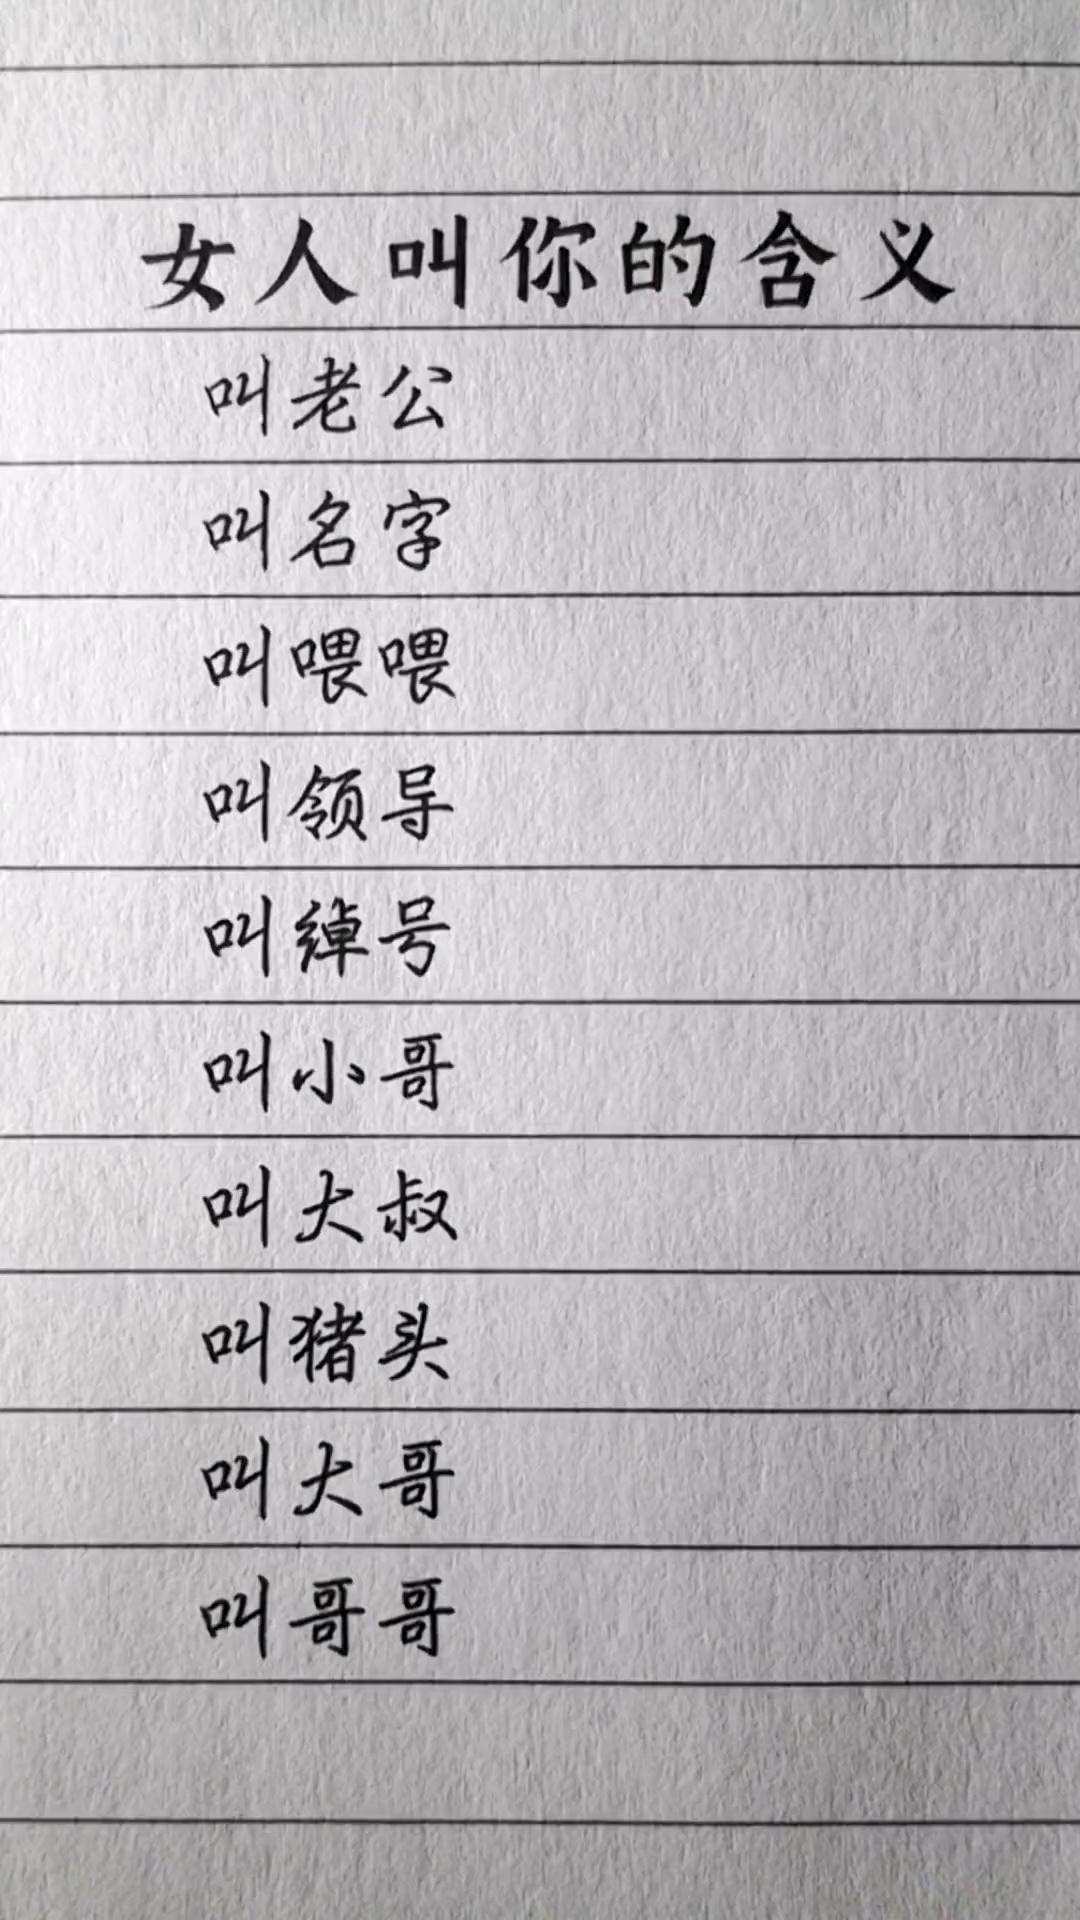 女人叫你的含义
叫老公
叫名字
叫喂喂
叫领导
叫绰号
叫小哥
叫大叔
叫猪头
叫大哥
叫哥哥